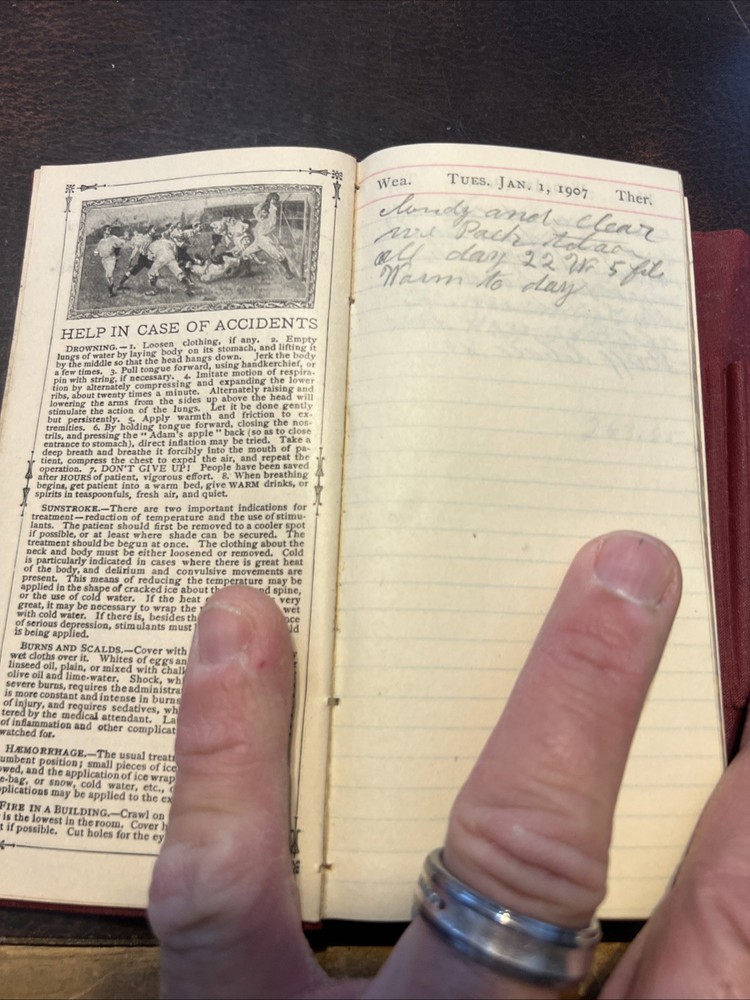 HELP IN CASE OF ACCIDENTS
DROWNING.—1. Loosen clothing, if any. 2. Empty
lungs of water by laying body on its stomach, and lifting it
by the middle so that the head hangs down. Jerk the body
a few times. 3. Pull tongue forward, using handkerchief, or
pin with string, if necessary. 4. Imitate motion of respira-
tion by alternately compressing and expanding the lower
ribs, about twenty times a minute. Alternately raising and
lowering the arms from the sides up above the head will
stimulate the action of the lungs. Let it be done gently
but persistently. 5. Apply warmth and friction to ex-
tremities. 6. By holding tongue forward, closing the nos-
trils, and pressing the "Adam's apple" back (so as to close
entrance to stomach), direct inflation may be tried. Take a
deep breath and breathe it forcibly into the mouth of pa-
tient, compress the chest to expel the air, and repeat the
operation. 7. DON'T GIVE UP! People have been saved
after HOURS of patient, vigorous effort. 8. When breathing
begins, get patient into a warm bed, give WARM drinks, or
spirits in teaspoonfuls, fresh air, and quiet.
SUNSTROKE.—There are two important indications for
treatment—reduction of temperature and the use of stimu-
lants. The patient should first be removed to a cooler spot
if possible, or at least where shade can be secured. The
treatment should be begun at once. The clothing about the
neck and body must be either loosened or removed. Cold
is particularly indicated in cases where there is great heat
of the body, and delirium and convulsive movements are
present. This means of reducing the temperature may be
applied in the shape of cracked ice about the spine,
or the use of cold water. If the heat very
great, it may be necessary to wrap the wet
with cold water. If there is, besides
of serious depression, stimulants must
is being applied.
BURNS AND SCALDS.—Cover with
wet cloths over it. Whites of eggs an
linseed oil, plain, or mixed with chalk
olive oil and lime-water. Shock, wh
severe burns, requires the administra
is more constant and intense in burns
of injury, and requires sedatives, wh
tered by the medical attendant. La
of inflammation and other complicat
watched for.
HÆMORRHAGE.—The usual treat
umbent position; small pieces of ice
owed, and the application of ice wrap
e-bag, or snow, cold water, etc.,
plications may be applied to the ex
FIRE IN A BUILDING.—Crawl on
is the lowest in the room. Cover h
t if possible. Cut holes for the ey
Wea. TUES. JAN. 1, 1907 Ther.
and clear
all day 22
Warm to day